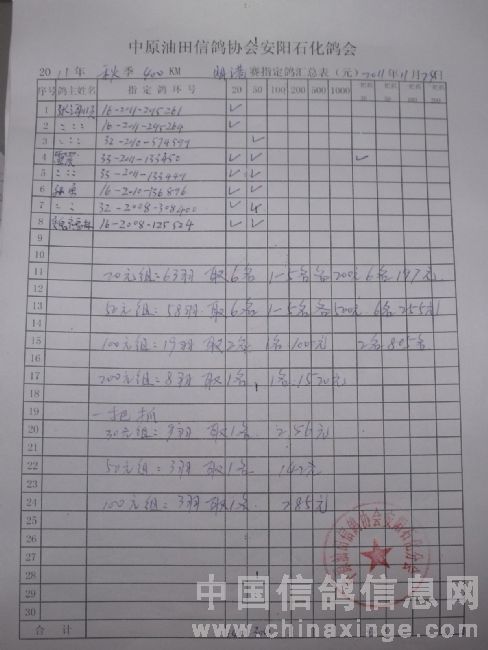 中原油田信鸽协会安阳石化鸽会
2011年 秋季 400KM 赛指定鸽汇总表（元）2011年11月28日
序号 鸽主姓名 指定鸽环号 20 50 100 200 500 1000
1 16-2011-245261 ✓
2 〃 〃 〃 16-2011-245264 ✓
3 〃 〃 〃 32-2010-574577 ✓
4 雷震 33-2011-133450 ✓ ✓ ✓
5 〃 〃 33-2011-133447 ✓ ✓
6 16-2010-136876 ✓ ✓
7 〃 〃 32-2008-308400 ✓
8 16-2008-125524 ✓ ✓
9
10
11 20元组：63羽 取6名 1-5名各200元 6名197元
12
13 50元组：58羽 取6名 1-5名各500元 6名255元
14
15 100元组：19羽 取2名 1名100元 2名805名
16
17 200元组：8羽 取1名 1名1520元
18
19 一把抓
20 30元组：9羽 取1名 256元
21
22 50元组：3羽 取1名 142元
23
24 100元组：3羽 取1名 285元
25
26
27
28
29
30
合计
中原油田信鸽协会安阳石化鸽会
中国信鸽信息网
www.chinaxinge.com